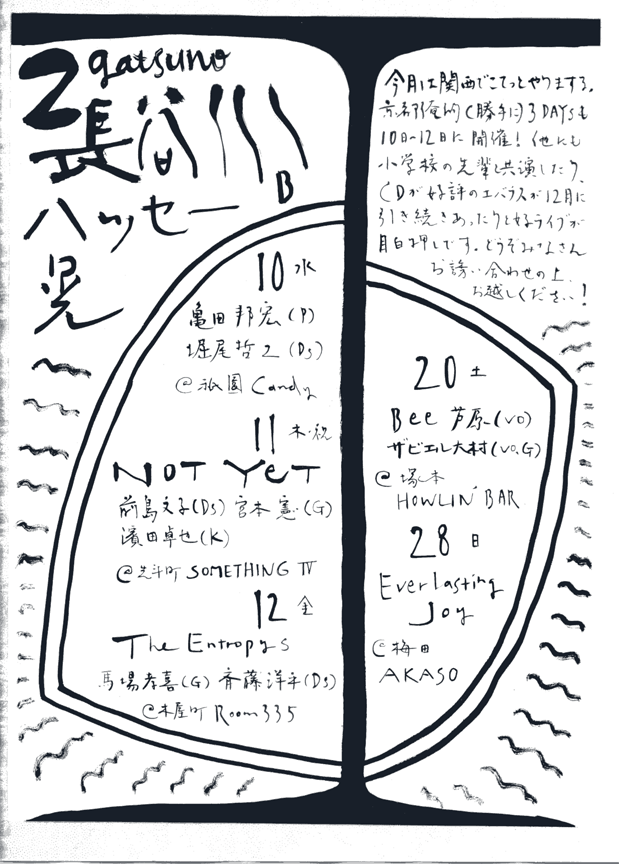 2gatsuno
長谷川
B
ハッセー
晃
今月は関西でこてっとやりまする。
京都俺的(勝手に)3DAYSも
10日〜12日に開催！他にも
小学校の先輩と共演したり、
CDが好評のエバラスが12月に
引き続きあったりと好ライブが
目白押しです。どうぞみなさん
お誘い合わせの上、
お越しください！
10 水
亀田邦宏(P)
堀尾哲二(Ds)
@祇園 Candy
11 木・祝
NOT YeT
前島文子(Ds) 宮本憲(G)
濱田卓也(K)
@先斗町 SOMETHING IV
12 金
The Entropys
馬場孝喜(G) 斉藤洋平(Ds)
@木屋町 Room335
20 土
Bee 芦原(VO)
ザビエル大村(VO.G)
@塚本
HOWLIN' BAR
28 日
Everlasting
Joy
@梅田
AKASO